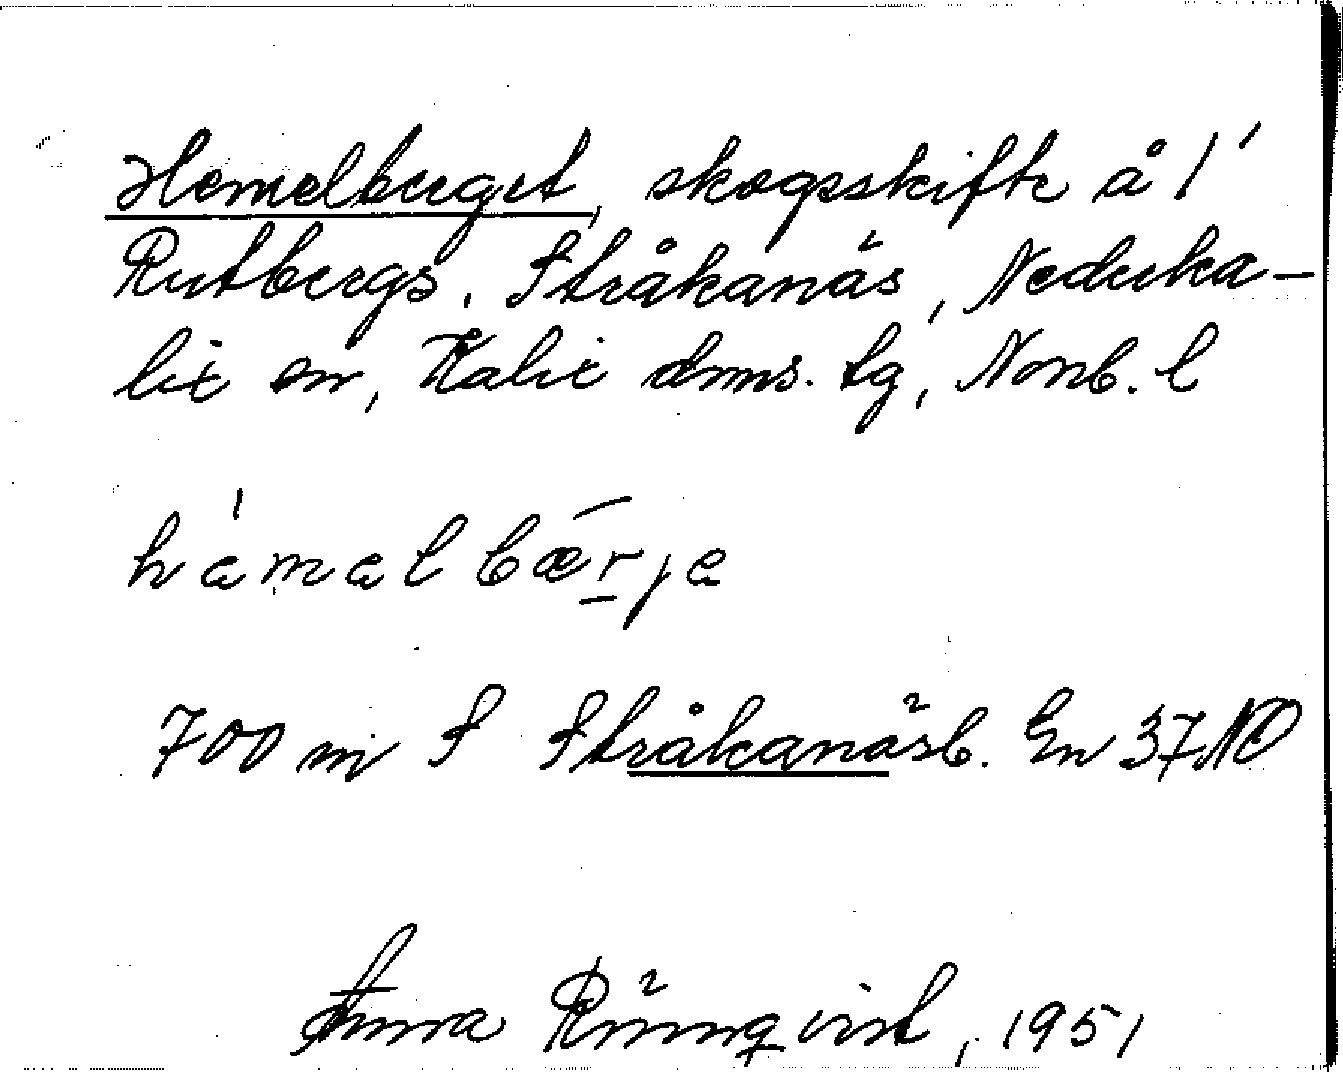 Hemelberget, skogsskifte å 1'
Rutbergs. Stråkanäs, Nederka-
lix sn, Kalix dmns. tg, Norrb. l
hamalbærje
700 m S Stråkanäsb. En 37 NO
Anna Rönnqvist, 1951